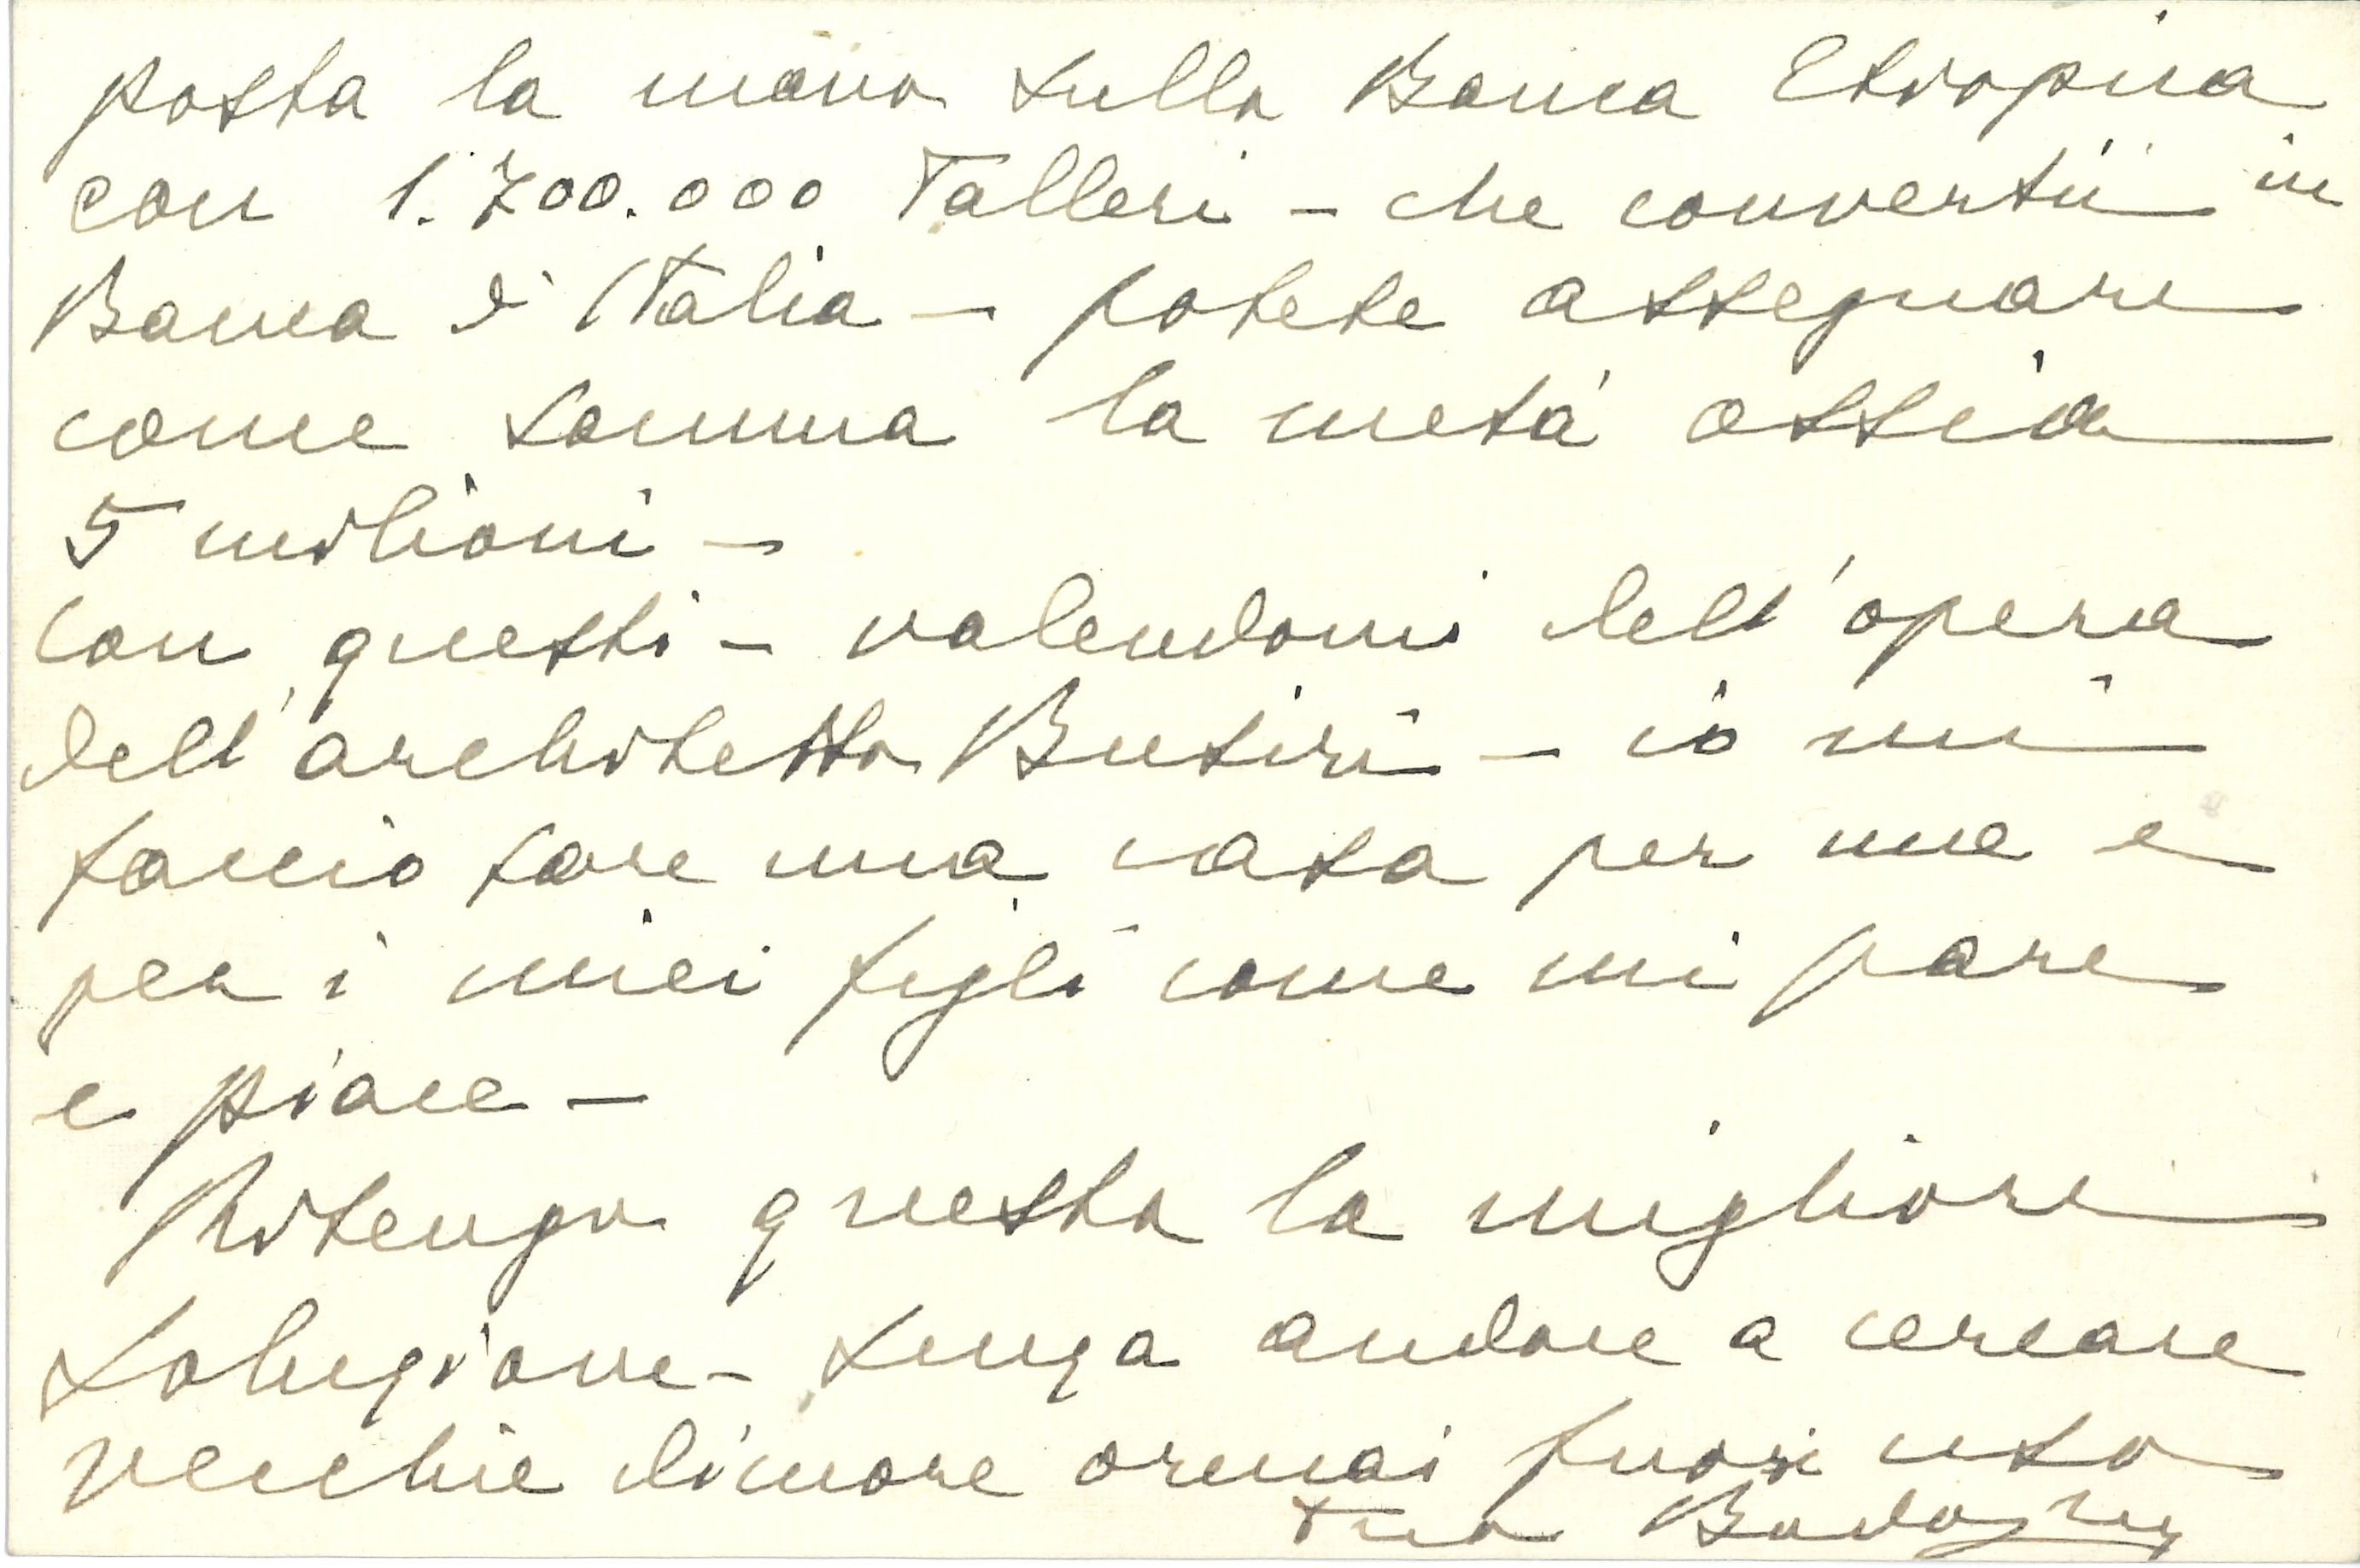 posta la mano sulla Banca Etiopica
con 1.700.000 Talleri - che convertii in
Banca d'Italia - potete assegnare
come somma la metà ossia
5 milioni -
Con questi - valendomi dell'opera
dell'architetto Busiri - io mi
faccio fare una casa per me e
per i miei figli come mi pare
e piace -
Ritengo questa la migliore
soluzione - senza andare a cercare
vecchie dimore ormai fuori uso
Tuo Badoglio